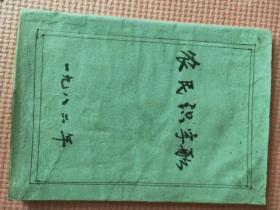 农民识字
一九八六年